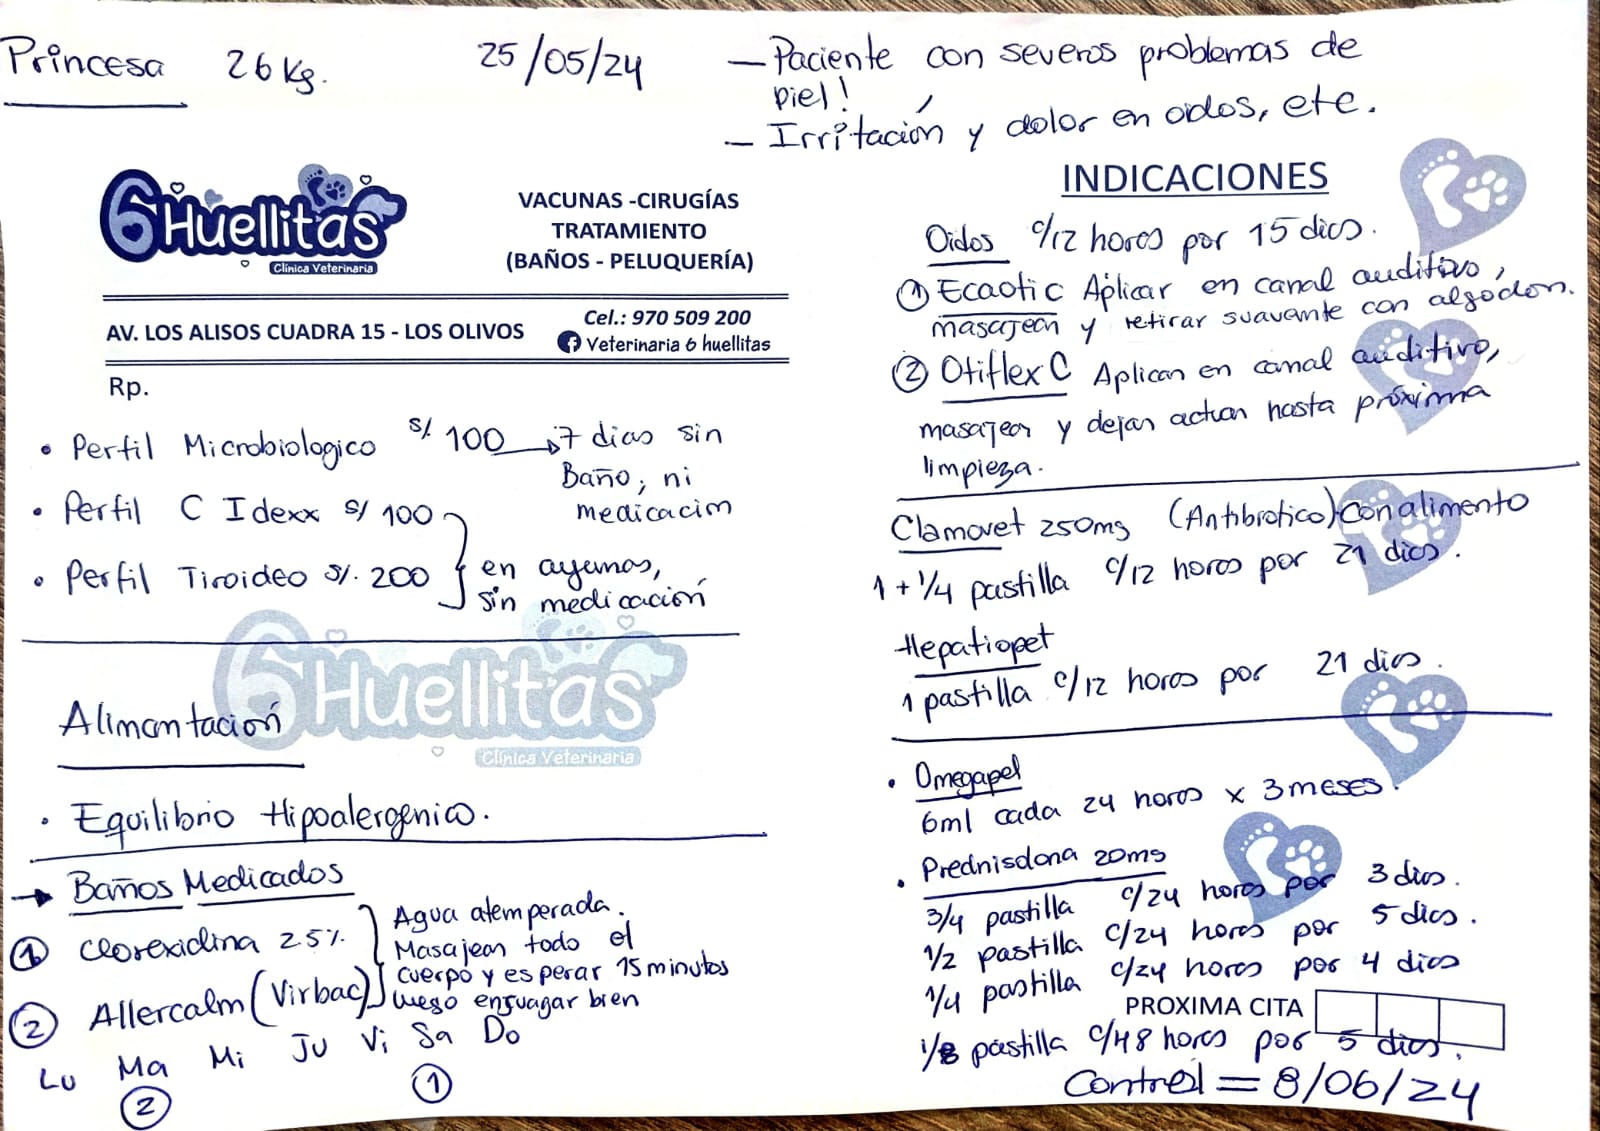 Princesa 26 Kg. 25/05/24
— Paciente con severos problemas de
piel!
— Irritación y dolor en oidos, etc.
6 Huellitas
Clínica Veterinaria
VACUNAS -CIRUGÍAS
TRATAMIENTO
(BAÑOS - PELUQUERÍA)
AV. LOS ALISOS CUADRA 15 - LOS OLIVOS
Cel.: 970 509 200
Veterinaria 6 huellitas
Rp.
• Perfil Microbiologico S/. 100 → 7 dias sin
Baño, ni
medicacion
• Perfil C Idexx S/ 100
• Perfil Tiroideo S/. 200
en ayunas,
sin medicación
6 Huellitas
Clínica Veterinaria
Alimentación
• Equilibrio Hipoalergenico.
→ Baños Medicados
① Clorexidina 2.5%.
② Allercalm (Virbac)
Agua atemperada.
Masajear todo el
cuerpo y esperar 15 minutos
luego enjuagar bien
Lu Ma Mi Ju Vi Sa Do
② ①
INDICACIONES
Oidos c/12 horas por 15 dias.
① Ecaotic Aplicar en canal auditivo,
masajear y retirar suavante con algodon.
② Otiflex C Aplicar en canal auditivo,
masajear y dejar actuar hasta próxima
limpieza.
Clamovet 250mg (Antibiotico) Con alimento
1 + 1/4 pastilla c/12 horas por 21 dias.
Hepatiopet
1 pastilla c/12 horas por 21 dias.
• Omegapel
6ml cada 24 horas x 3 meses.
• Prednisolona 20mg
3/4 pastilla c/24 horas por 3 dias.
1/2 pastilla c/24 horas por 5 dias.
1/4 pastilla c/24 horas por 4 dias
PROXIMA CITA
1/8 pastilla c/48 horas por 5 dias.
Control = 8/06/24